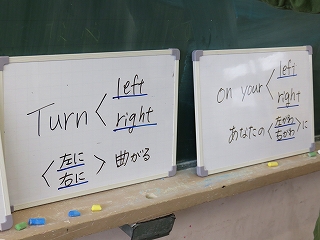 Turn < left
right
< 左に
右に > 曲がる
on your < left
right
あなたの < 左がわ
右がわ > に